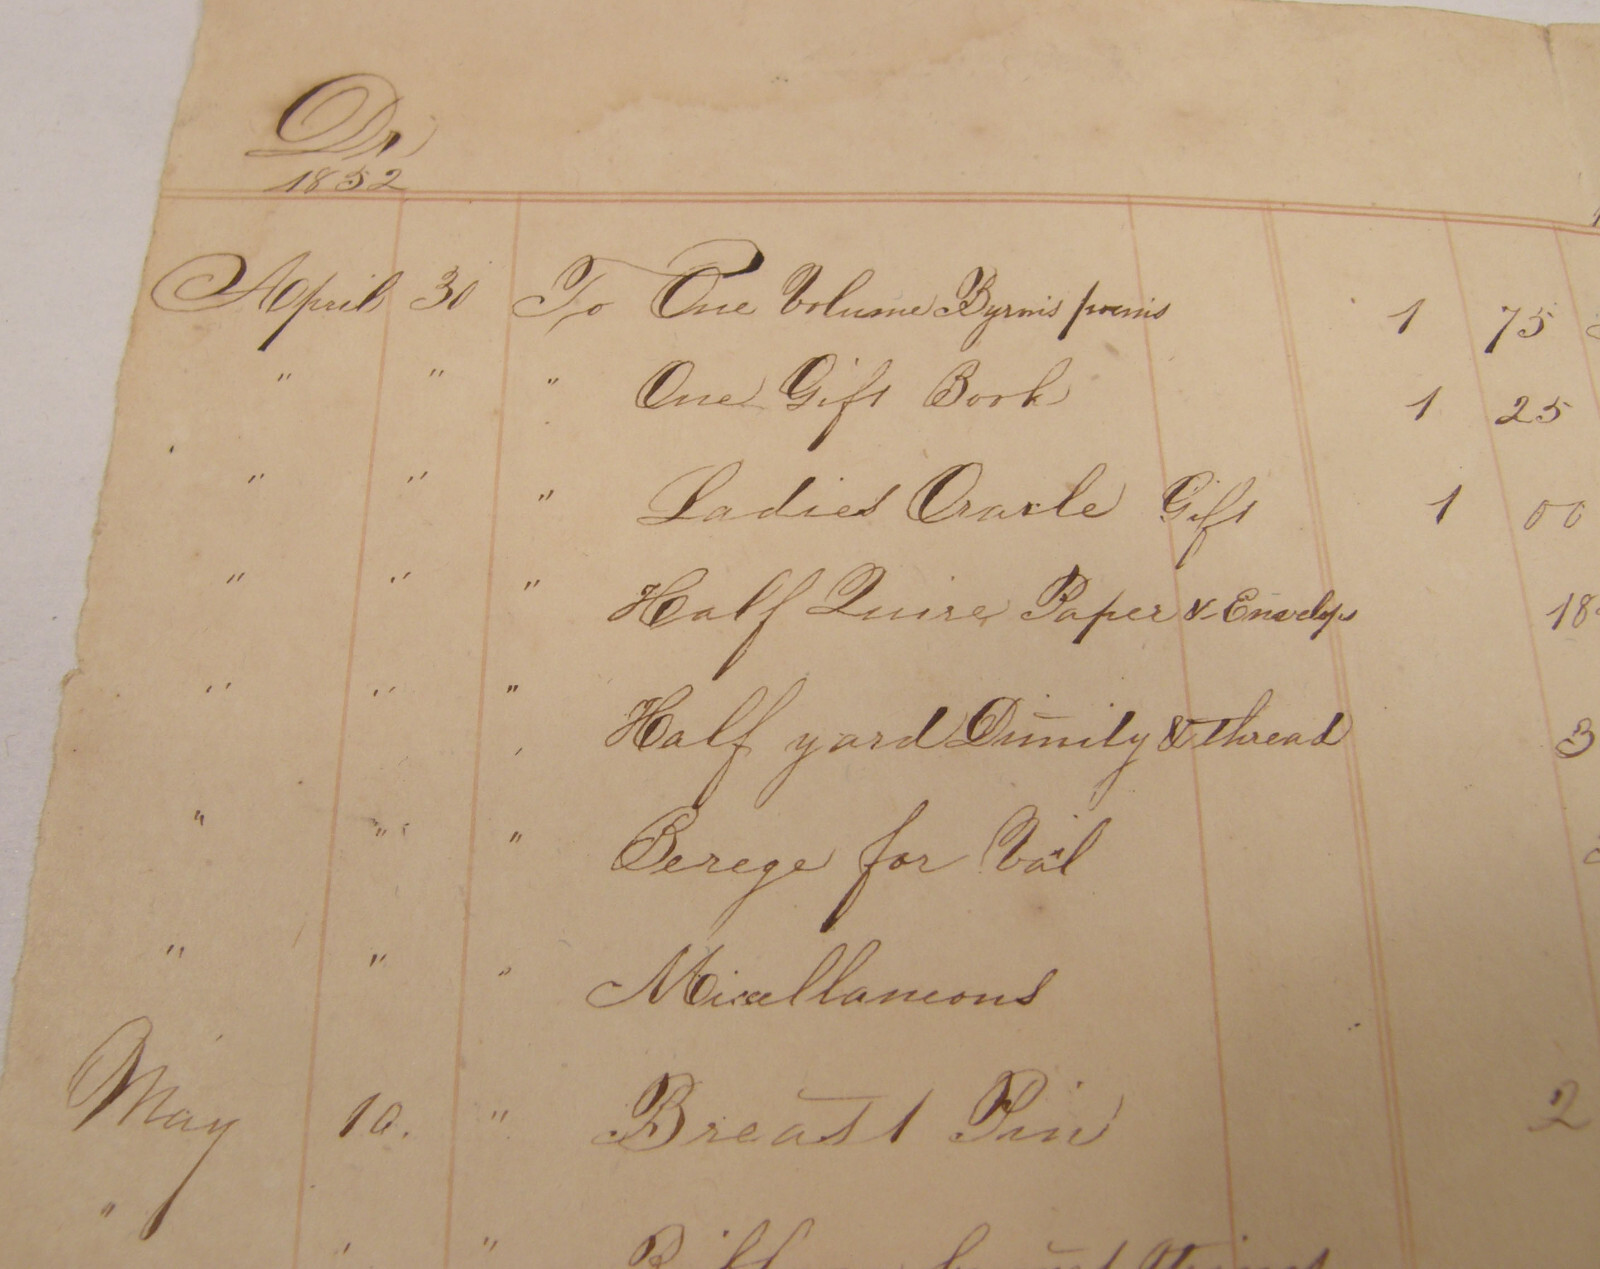 Dr
1852
April 30 To One Volume Byrons poems 1 75
" " " One Gift Book 1 25
" " " Ladies Oracle Gift 1 00
" " " Half Quire Paper & Envelops 18
" " " Half yard Dimity & thread 3
" " " Berege for Vail
" " " Micellaneous
May 10. " Breast Pin 2
" " "